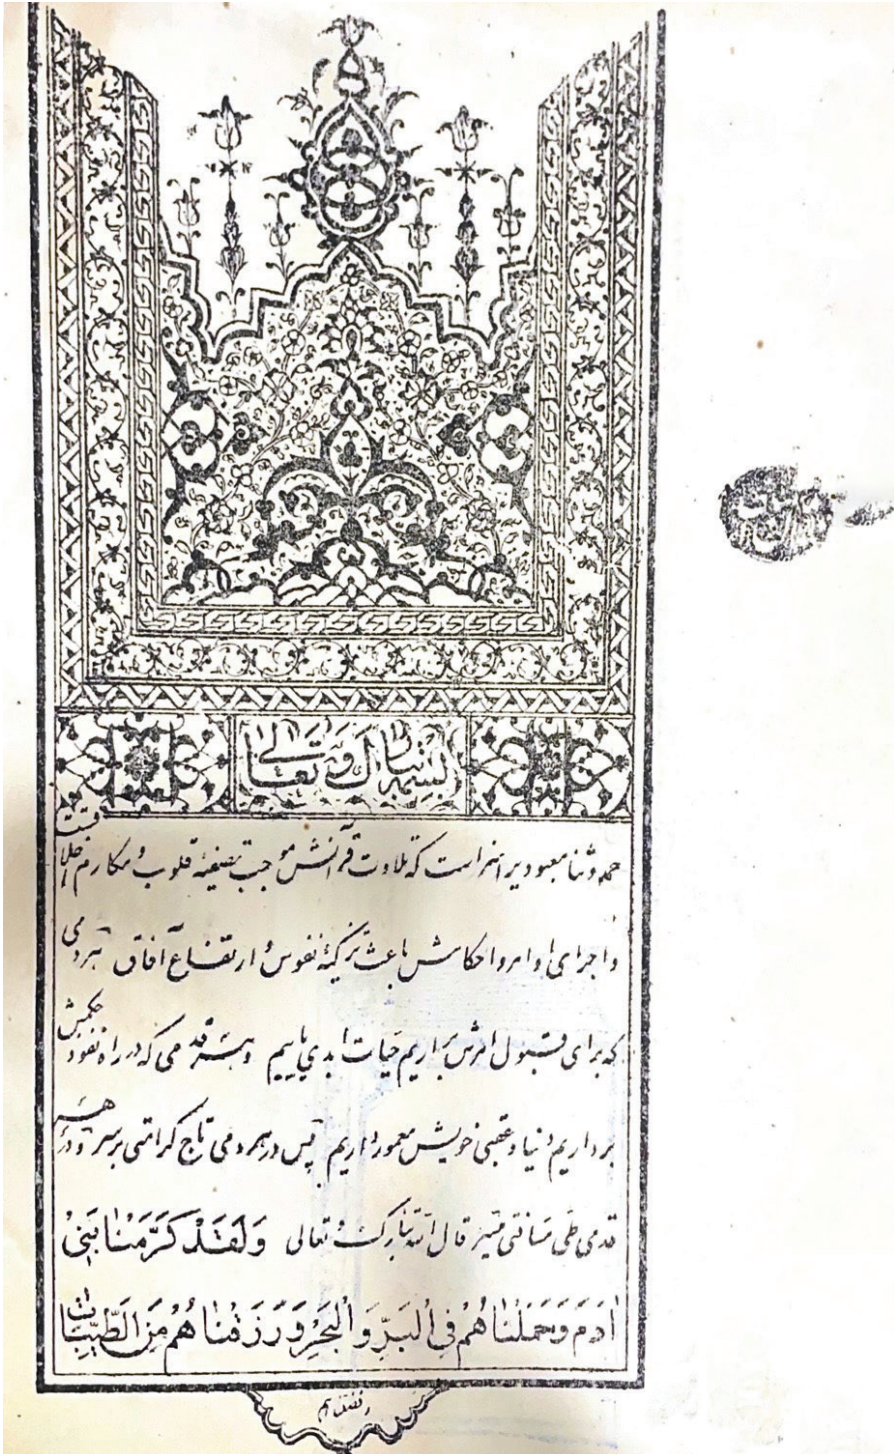 بسمه تبارک و تعالی
حمد و ثنا معبودیرا سزاست که تلاوت قرآنش موجب تصفیهٔ قلوب و مکارم اخلاقست
و اجرای اوامر و احکامش باعث تزکیهٔ نفوس و ارتفاع آفاق هردمی
که برای قبول امرش براریم حیات ابدي یابیم و هر قدمی که در راه نفوذ حکمش
برداریم دنیا و عقبی خویش معمور داریم پس در هر دمی تاج کرامتی بر سر و در هر
قدمی طی مسافتی میسّر قال الله تبارک و تعالی وَلَقَدْ كَرَّمْنٰا بَنِیْ
اٰدَمَ وَحَمَلْنٰاهُمْ فِی الْبَرِّ وَالْبَحْرِ وَرَزَقْنٰاهُمْ مِنَ الطَّیِّبٰاتِ
و فضلناهم